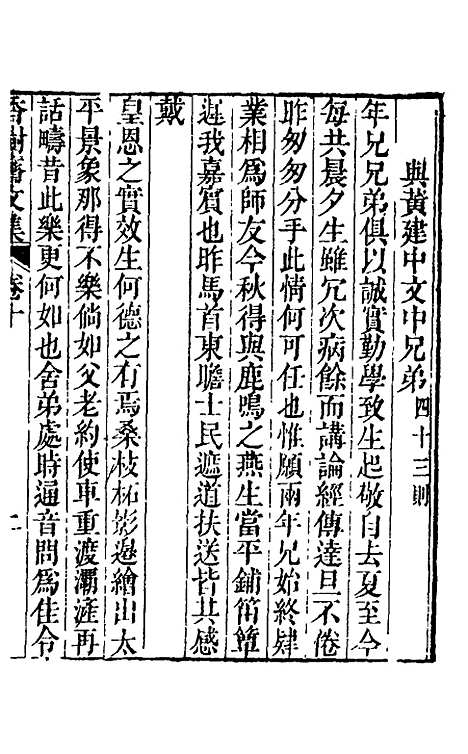 與黃建中文中兄弟四十三則
年兄兄弟俱以誠實勤學致生起敬自去夏至今
每共晨夕生雖冗次病餘而講論經傳達旦不倦
昨匆匆分手此情何可任也惟願兩年兄始終肄
業相爲師友今秋得與鹿鳴之燕生當平鋪笛簟
遲我嘉賓也昨馬首東瞻士民遮道扶送皆共感
戴
皇恩之實效生何德之有焉桑枝柘影邊繪出太
平景象那得不樂倘如父老約使車重渡灞滻再
話疇昔此樂更何如也舍弟處時通音問爲佳令
香樹齋文集 卷十